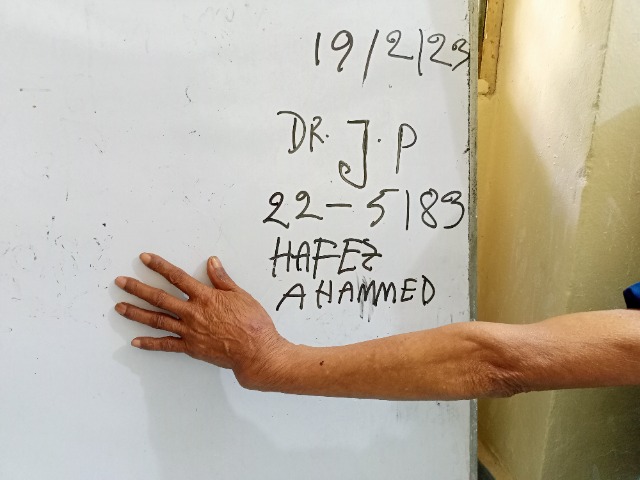 19/2/23
DR. J. P
22-5183
HAFEZ
AHAMMED